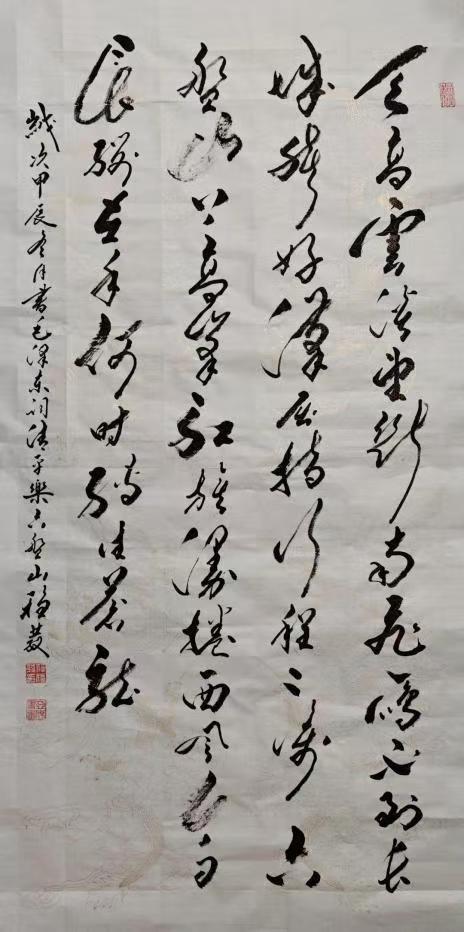 天高雲淡望斷南飛鴈不到长
城非好漢屈指行程二萬六
盤山上高峯紅旗漫捲西風今日
長纓在手何时縛住蒼龍
歲次甲辰冬月書毛澤東詞清平樂六盤山